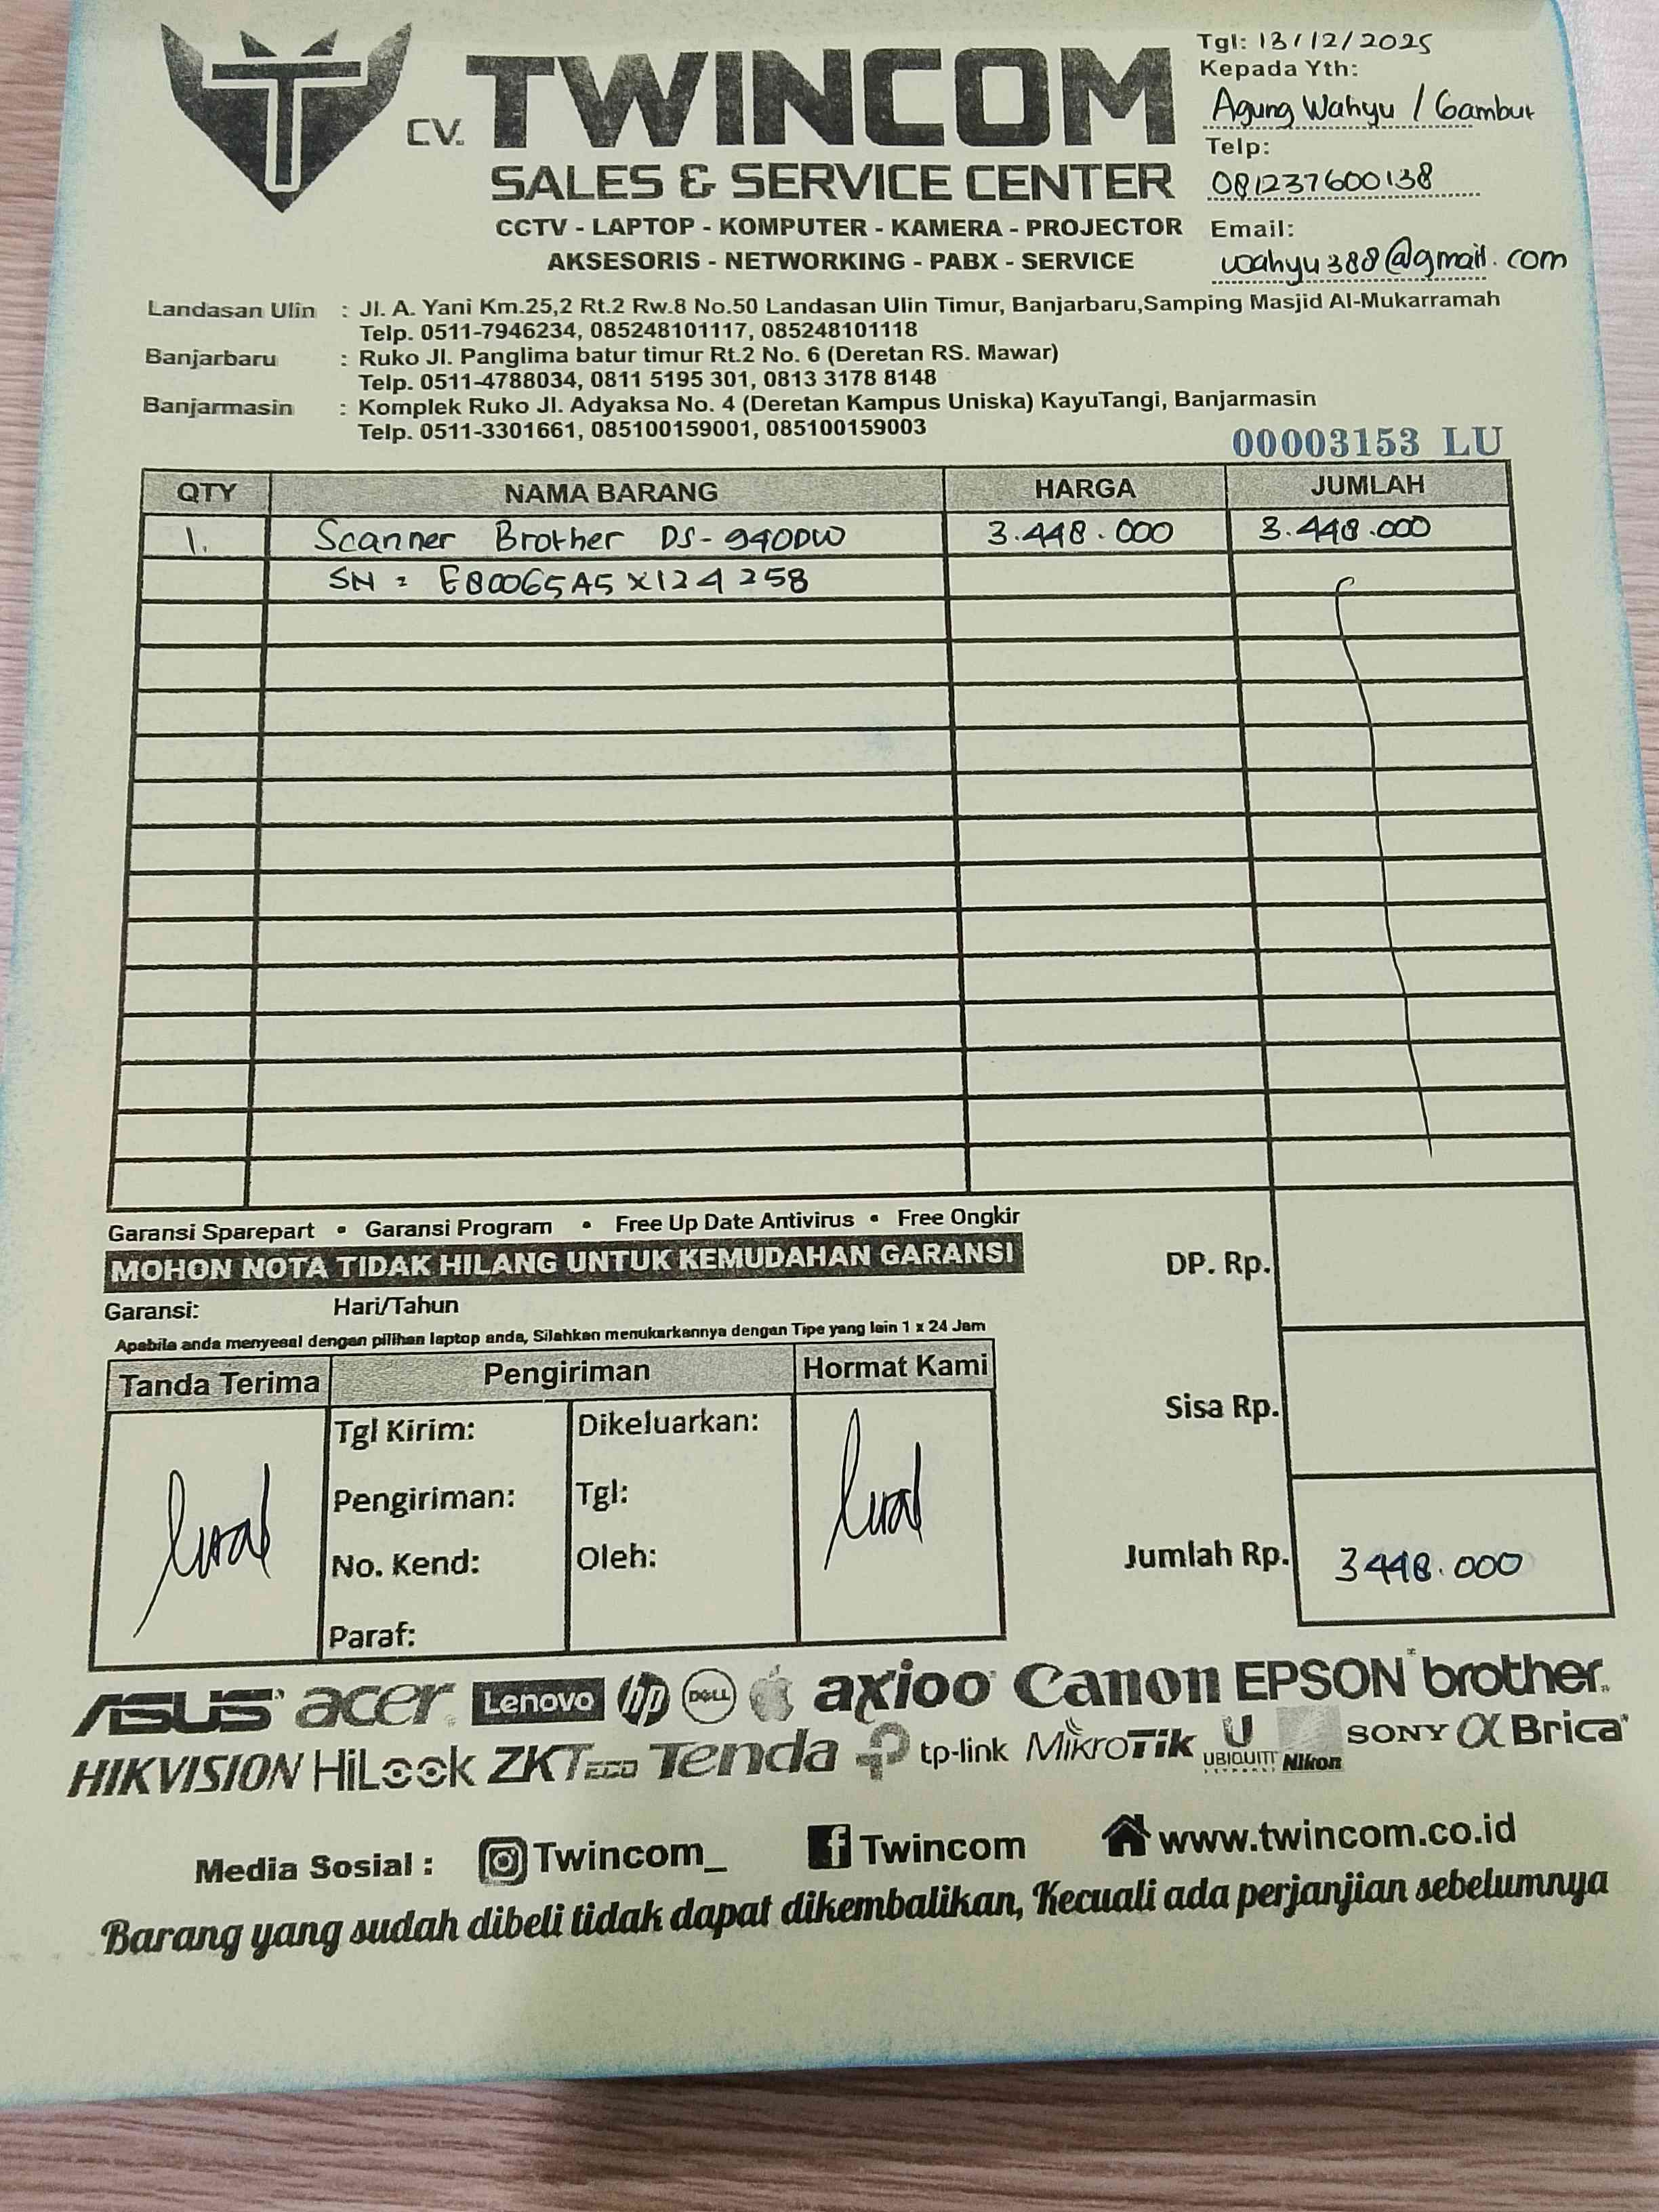 CV. TWINCOM
SALES & SERVICE CENTER
CCTV - LAPTOP - KOMPUTER - KAMERA - PROJECTOR
AKSESORIS - NETWORKING - PABX - SERVICE
Tgl: 13/12/2025
Kepada Yth:
Agung Wahyu / Gambut
Telp:
081237600138
Email:
wahyu388@gmail.com
Landasan Ulin : Jl. A. Yani Km.25,2 Rt.2 Rw.8 No.50 Landasan Ulin Timur, Banjarbaru,Samping Masjid Al-Mukarramah
Telp. 0511-7946234, 085248101117, 085248101118
Banjarbaru : Ruko Jl. Panglima batur timur Rt.2 No. 6 (Deretan RS. Mawar)
Telp. 0511-4788034, 0811 5195 301, 0813 3178 8148
Banjarmasin : Komplek Ruko Jl. Adyaksa No. 4 (Deretan Kampus Uniska) KayuTangi, Banjarmasin
Telp. 0511-3301661, 085100159001, 085100159003
00003153 LU
QTY NAMA BARANG HARGA JUMLAH
1. Scanner Brother DS-940DW 3.448.000 3.448.000
SN = E80065A5X124258
Garansi Sparepart • Garansi Program • Free Up Date Antivirus • Free Ongkir
MOHON NOTA TIDAK HILANG UNTUK KEMUDAHAN GARANSI
Garansi: Hari/Tahun
Apabila anda menyesal dengan pilihan laptop anda, Silahkan menukarkannya dengan Tipe yang lain 1 x 24 Jam
DP. Rp.
Sisa Rp.
Jumlah Rp. 3448.000
Tanda Terima Pengiriman Hormat Kami
Tgl Kirim: Dikeluarkan:
Pengiriman: Tgl:
No. Kend: Oleh:
Paraf:
ASUS acer Lenovo hp DELL axioo Canon EPSON brother
HIKVISION HiLook ZKTeco Tenda tp-link MikroTik UBIQUITI NETWORKS Nikon SONY α Brica
Media Sosial : Twincom_ Twincom www.twincom.co.id
Barang yang sudah dibeli tidak dapat dikembalikan, Kecuali ada perjanjian sebelumnya